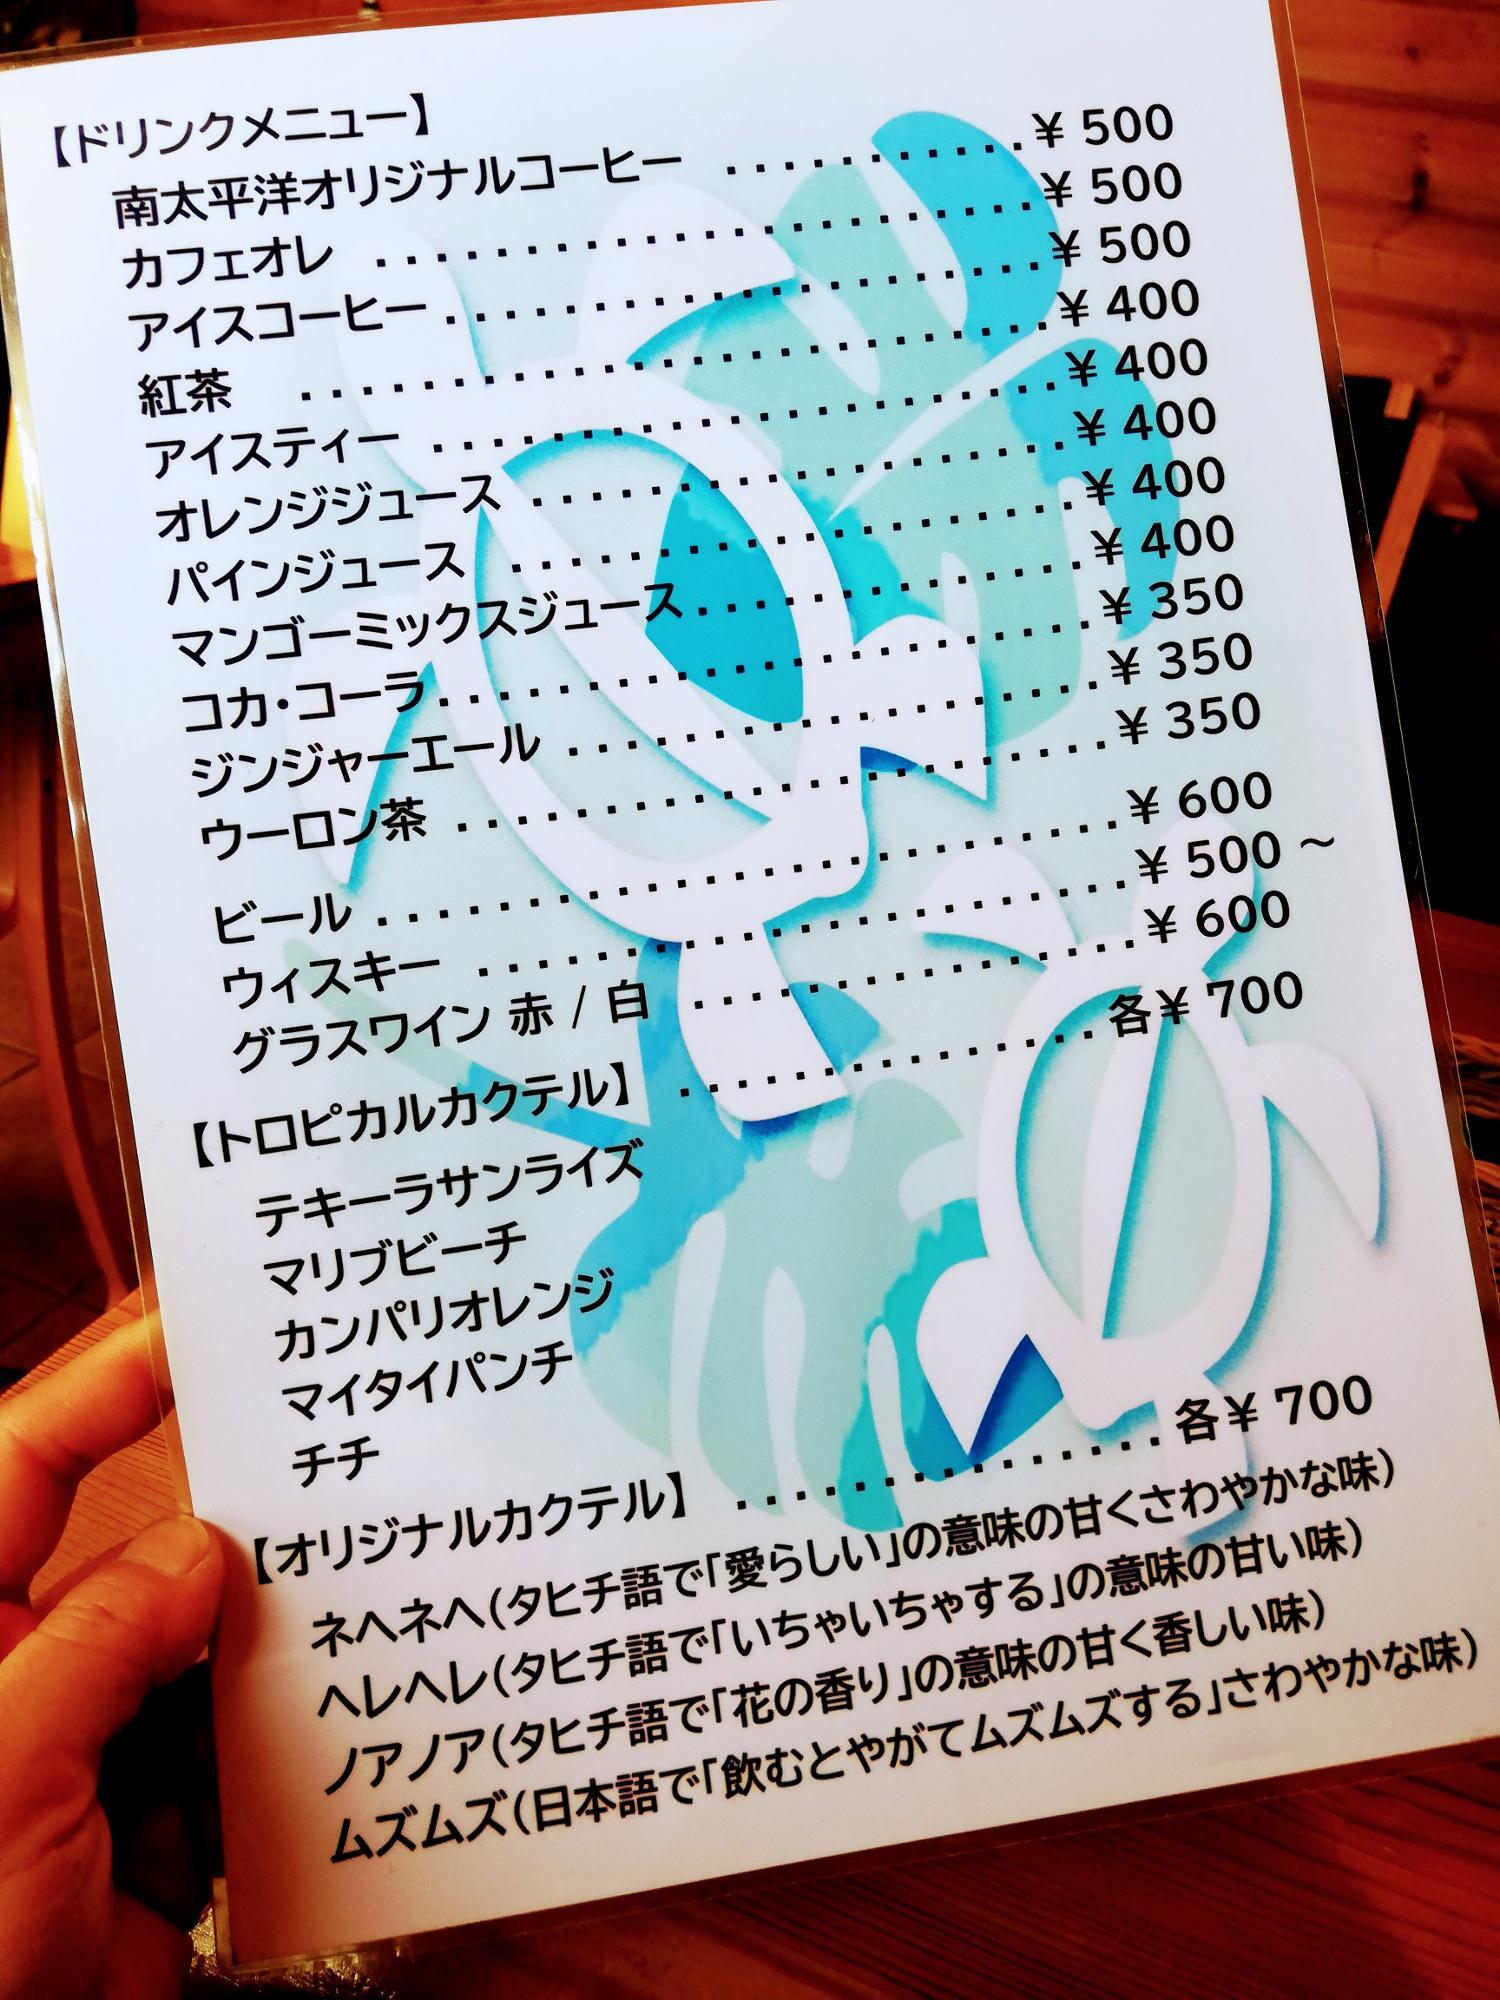 【ドリンクメニュー】
南太平洋オリジナルコーヒー ..........¥ 500
カフェオレ ......................¥ 500
アイスコーヒー....................¥ 500
紅茶 .........................¥ 400
アイスティー .....................¥ 400
オレンジジュース ..................¥ 400
パインジュース ...................¥ 400
マンゴーミックスジュース.............¥ 400
コカ・コーラ......................¥ 350
ジンジャーエール ..................¥ 350
ウーロン茶 ......................¥ 350
ビール .........................¥ 600
ウィスキー ......................¥ 500 ~
グラスワイン 赤 / 白 ...............¥ 600
【トロピカルカクテル】 ..............各¥ 700
テキーラサンライズ
マリブビーチ
カンパリオレンジ
マイタイパンチ
チチ
【オリジナルカクテル】 ..............各¥ 700
ネヘネヘ(タヒチ語で「愛らしい」の意味の甘くさわやかな味)
ヘレヘレ(タヒチ語で「いちゃいちゃする」の意味の甘い味)
ノアノア(タヒチ語で「花の香り」の意味の甘く香しい味)
ムズムズ(日本語で「飲むとやがてムズムズする」さわやかな味)